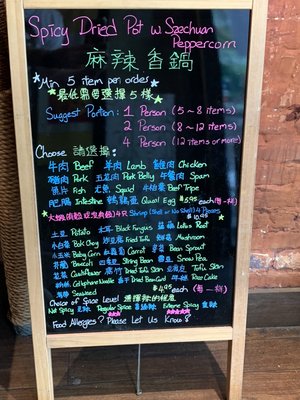 Spicy Dried Pot w Szechuan
Peppercorn
麻辣香鍋
Min 5 item per order
最低需要選擇 5 樣
Suggest Portion: 1 Person (5~8 items)
2 Person (8~12 items)
4 Person (12 items or more)
Choose 請選擇:
牛肉 Beef 羊肉 Lamb 雞肉 Chicken
豬肉 Pork 五花肉 Pork Belly 午餐肉 Spam
魚片 Fish 尤魚 Squid Beef Tripe
肥腸 Intestine 鵪鶉蛋 Quail Egg $5.95 each (每一樣)
Shrimp (Shell or No Shell) 4 Pieces
$10.95
土豆 Potato 木耳 Black Fungus 蓮藕 Lotus Root
小白菜 Bok Choy 凍豆腐 Fried Tofu 蘑菇 Mushroom
小玉米 Baby Corn 紅蘿蔔 Carrot 豆芽 Bean Sprout
Broccoli 四季豆 String Bean 雪豆 Snow Pea
花菜 Cauliflower 腐竹 Dried Tofu Skin 豆腐皮 Tofu Skin
粉絲 Cellophane Noodle Dried Bean Curd 年糕 Rice Cake
海帶 Seaweed $4.95 each (每一樣)
Choice of Spice Level 選擇辣的程度
Not Spicy Regular Spice Extreme Spicy
Food Allergies? Please Let Us Know!